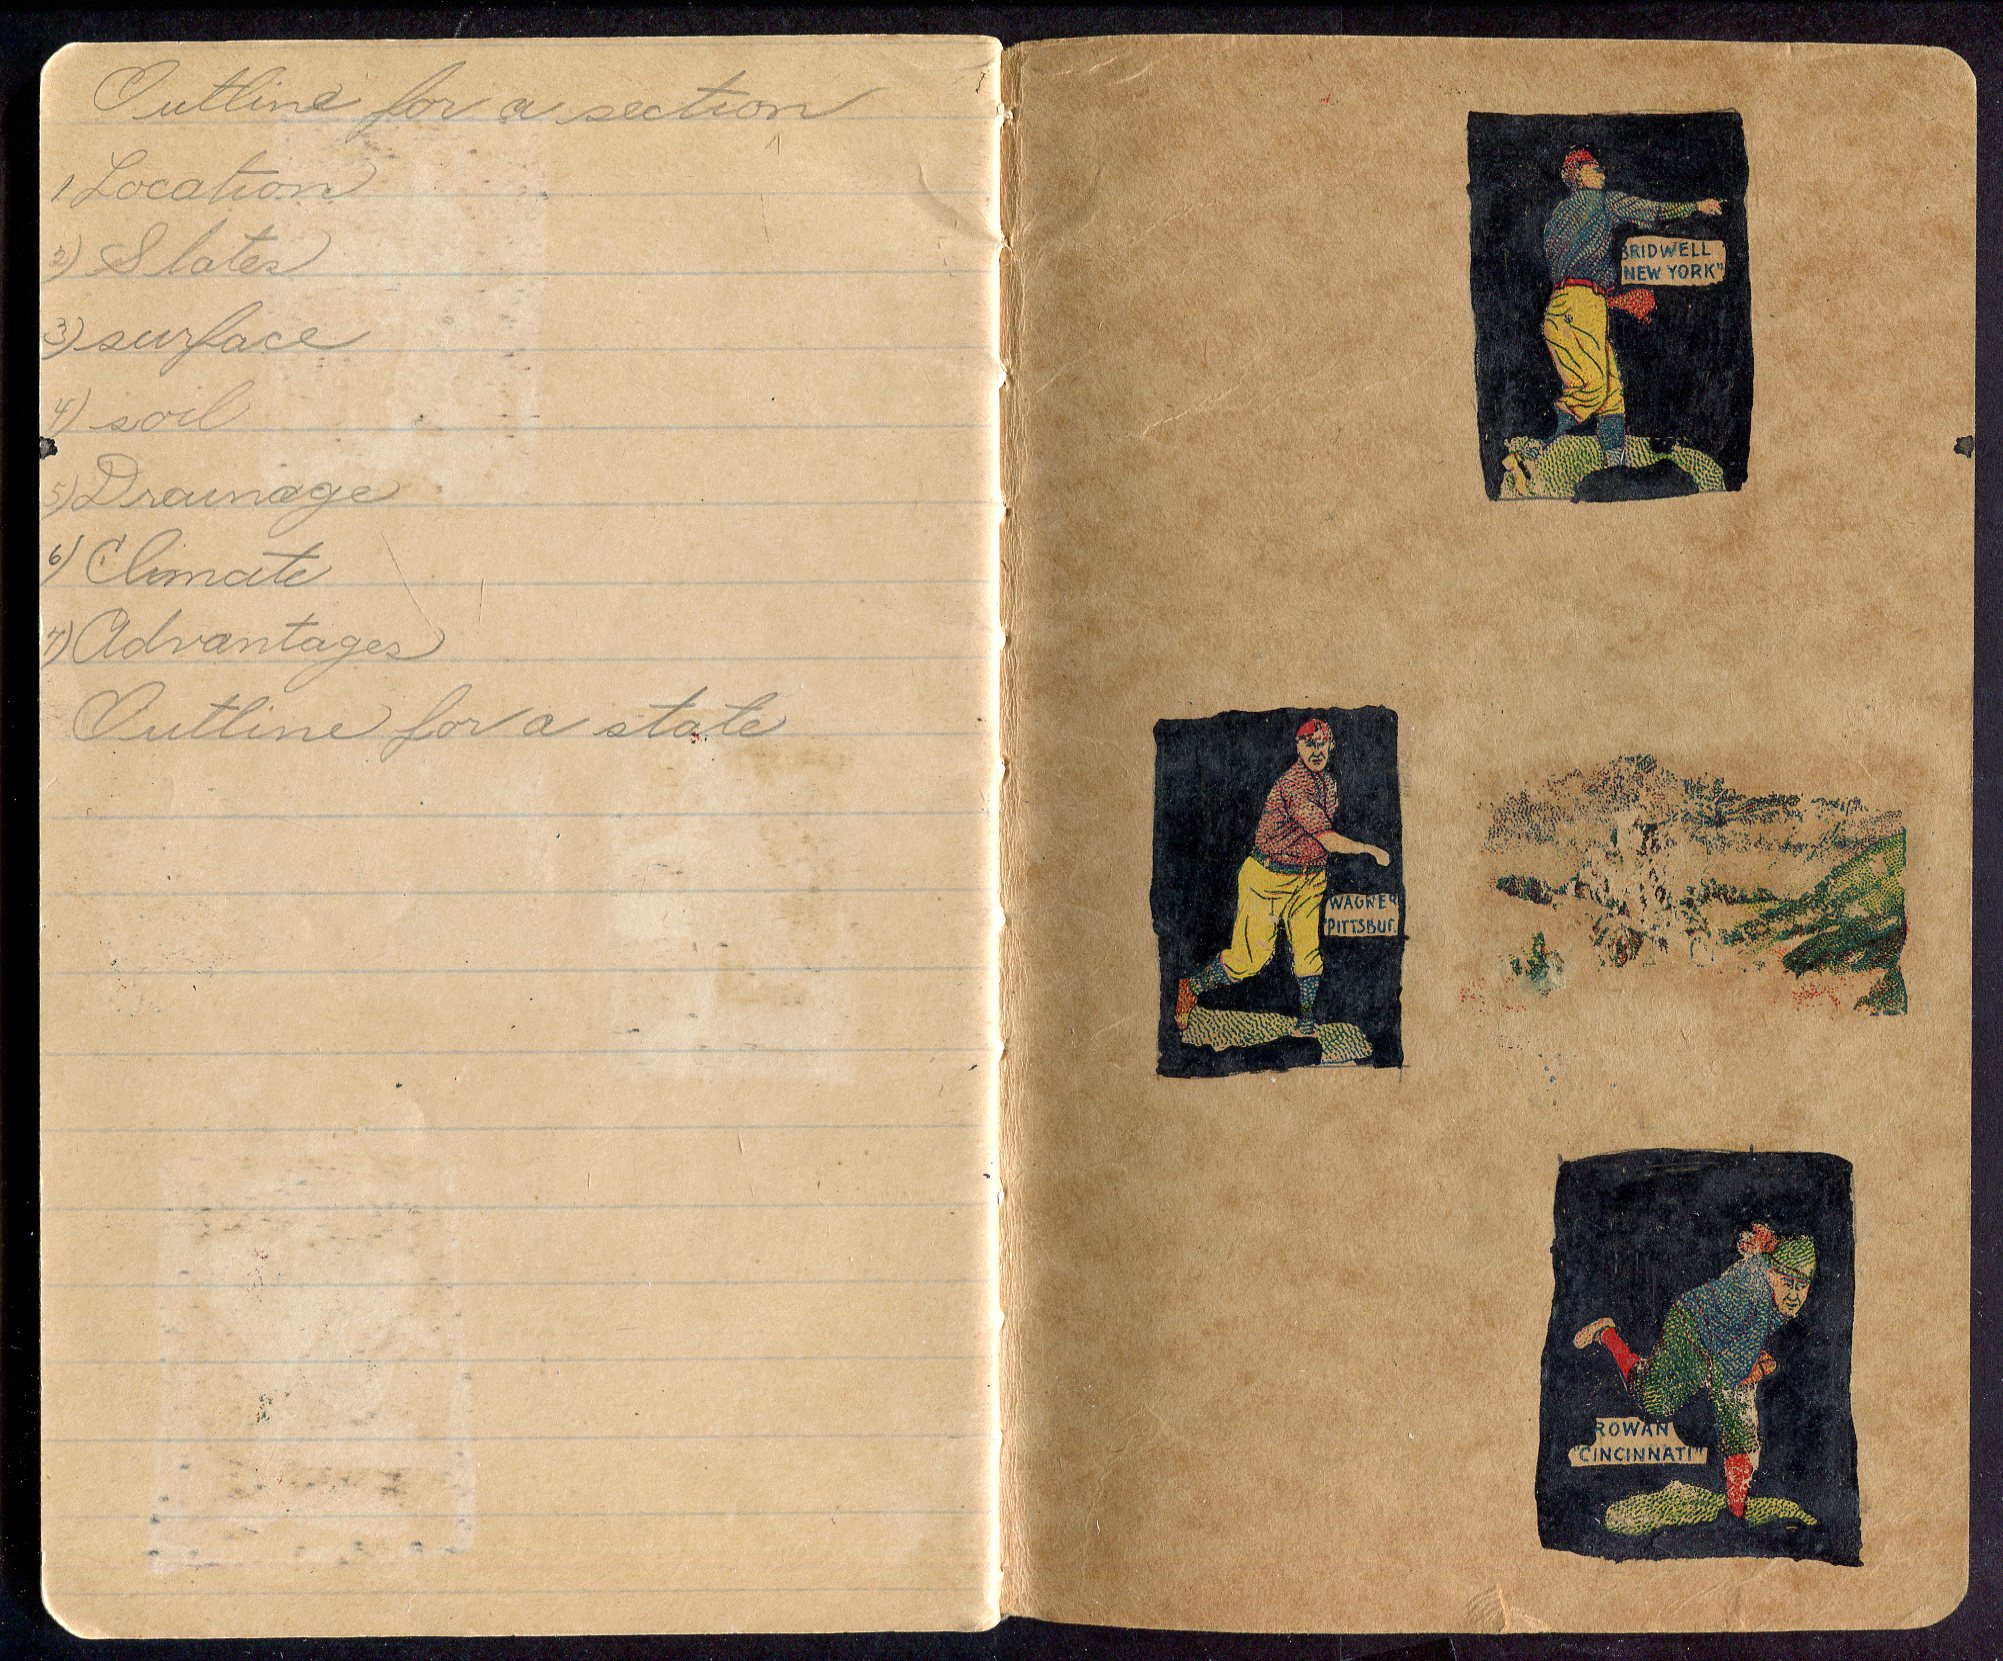 Outline for a section
1 Location
2) States
3) surface
4) soil
5) Drainage
6) Climate
7) Advantages
Outline for a state
BRIDWELL
NEW YORK"
WAGNER
PITTSBUR
ROWAN
"CINCINNATI"